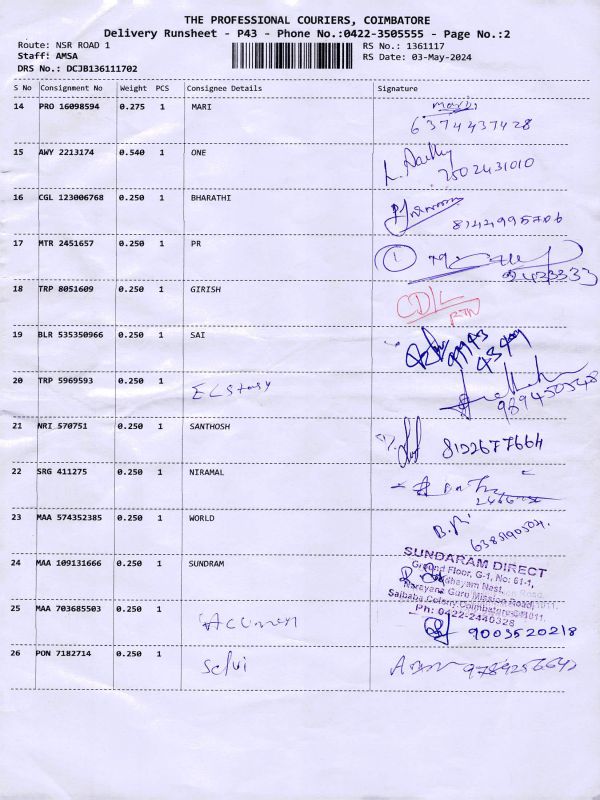 THE PROFESSIONAL COURIERS, COIMBATORE
Delivery Runsheet - P43 - Phone No.:0422-3505555 - Page No.:2
Route: NSR ROAD 1 RS No.: 1361117
Staff: AMSA RS Date: 03-May-2024
DRS No.: DCJB136111702
S No Consignment No Weight PCS Consignee Details Signature
14 PRO 16098594 0.275 1 MARI
6374437428
15 AWY 2213174 0.540 1 ONE
7502431010
16 CGL 123006768 0.250 1 BHARATHI
8144995706
17 MTR 2451657 0.250 1 PR 1
2423333
18 TRP 8051609 0.250 1 GIRISH
RTN
19 BLR 535350966 0.250 1 SAI
20 TRP 5969593 0.250 1 Ecstasy
989450548
21 NRI 570751 0.250 1 SANTHOSH 8122677664
22 SRG 411275 0.250 1 NIRAMAL
23 MAA 574352385 0.250 1 WORLD
24 MAA 109131666 0.250 1 SUNDRAM SUNDARAM DIRECT
Ground Floor, G-1, No: 61-1,
Narayana Guru Mission Road,
Saibaba Colony, Coimbatore-641011.
Ph: 0422-2440328
25 MAA 703685503 0.250 1 Acumen 9003520218
26 PON 7182714 0.250 1 Selvi